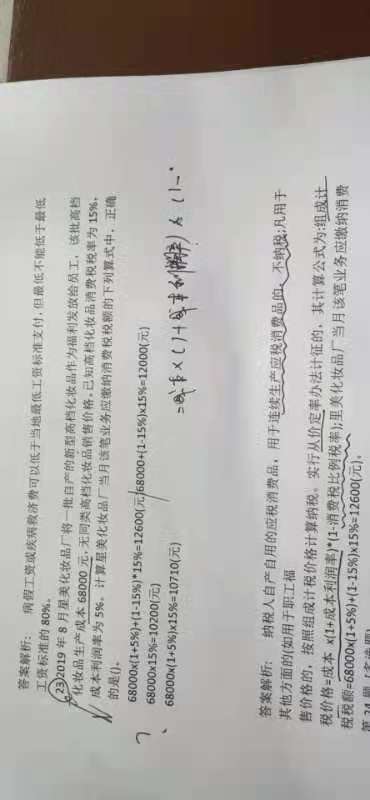 答案解析: 病假工资或疾病救济费可以低于当地最低工资标准支付,但最低不能低于最低
工资标准的 80%。
23 2019 年 8 月星美化妆品厂将一批自产的新型高档化妆品作为福利发放给员工,该批高档
化妆品生产成本 68000 元,无同类高档化妆品销售价格。已知高档化妆品消费税税率为 15%,
成本利润率为 5%。计算星美化妆品厂当月该笔业务应缴纳消费税税额的下列算式中,正确
的是()。
68000x(1+5%)÷(1-15%)*15%=12600(元) 68000÷(1-15%)x15%=12000(元)
68000x15%=10200(元)
68000x(1+5%)x15%=10710(元)
答案解析: 纳税人自产自用的应税消费品,用于连续生产应税消费品的,不纳税;凡用于
其他方面的(如用于职工福
售价格的,按照组成计税价格计算纳税。实行从价定率办法计征的,其计算公式为:组成计
税价格=成本 x(1+成本利润率)*(1-消费税比例税率);里美化妆品厂当月该笔业务应缴纳消费
税税额=68000x(1+5%)÷(1-15%)x15%=12600(元)。
第 24 题